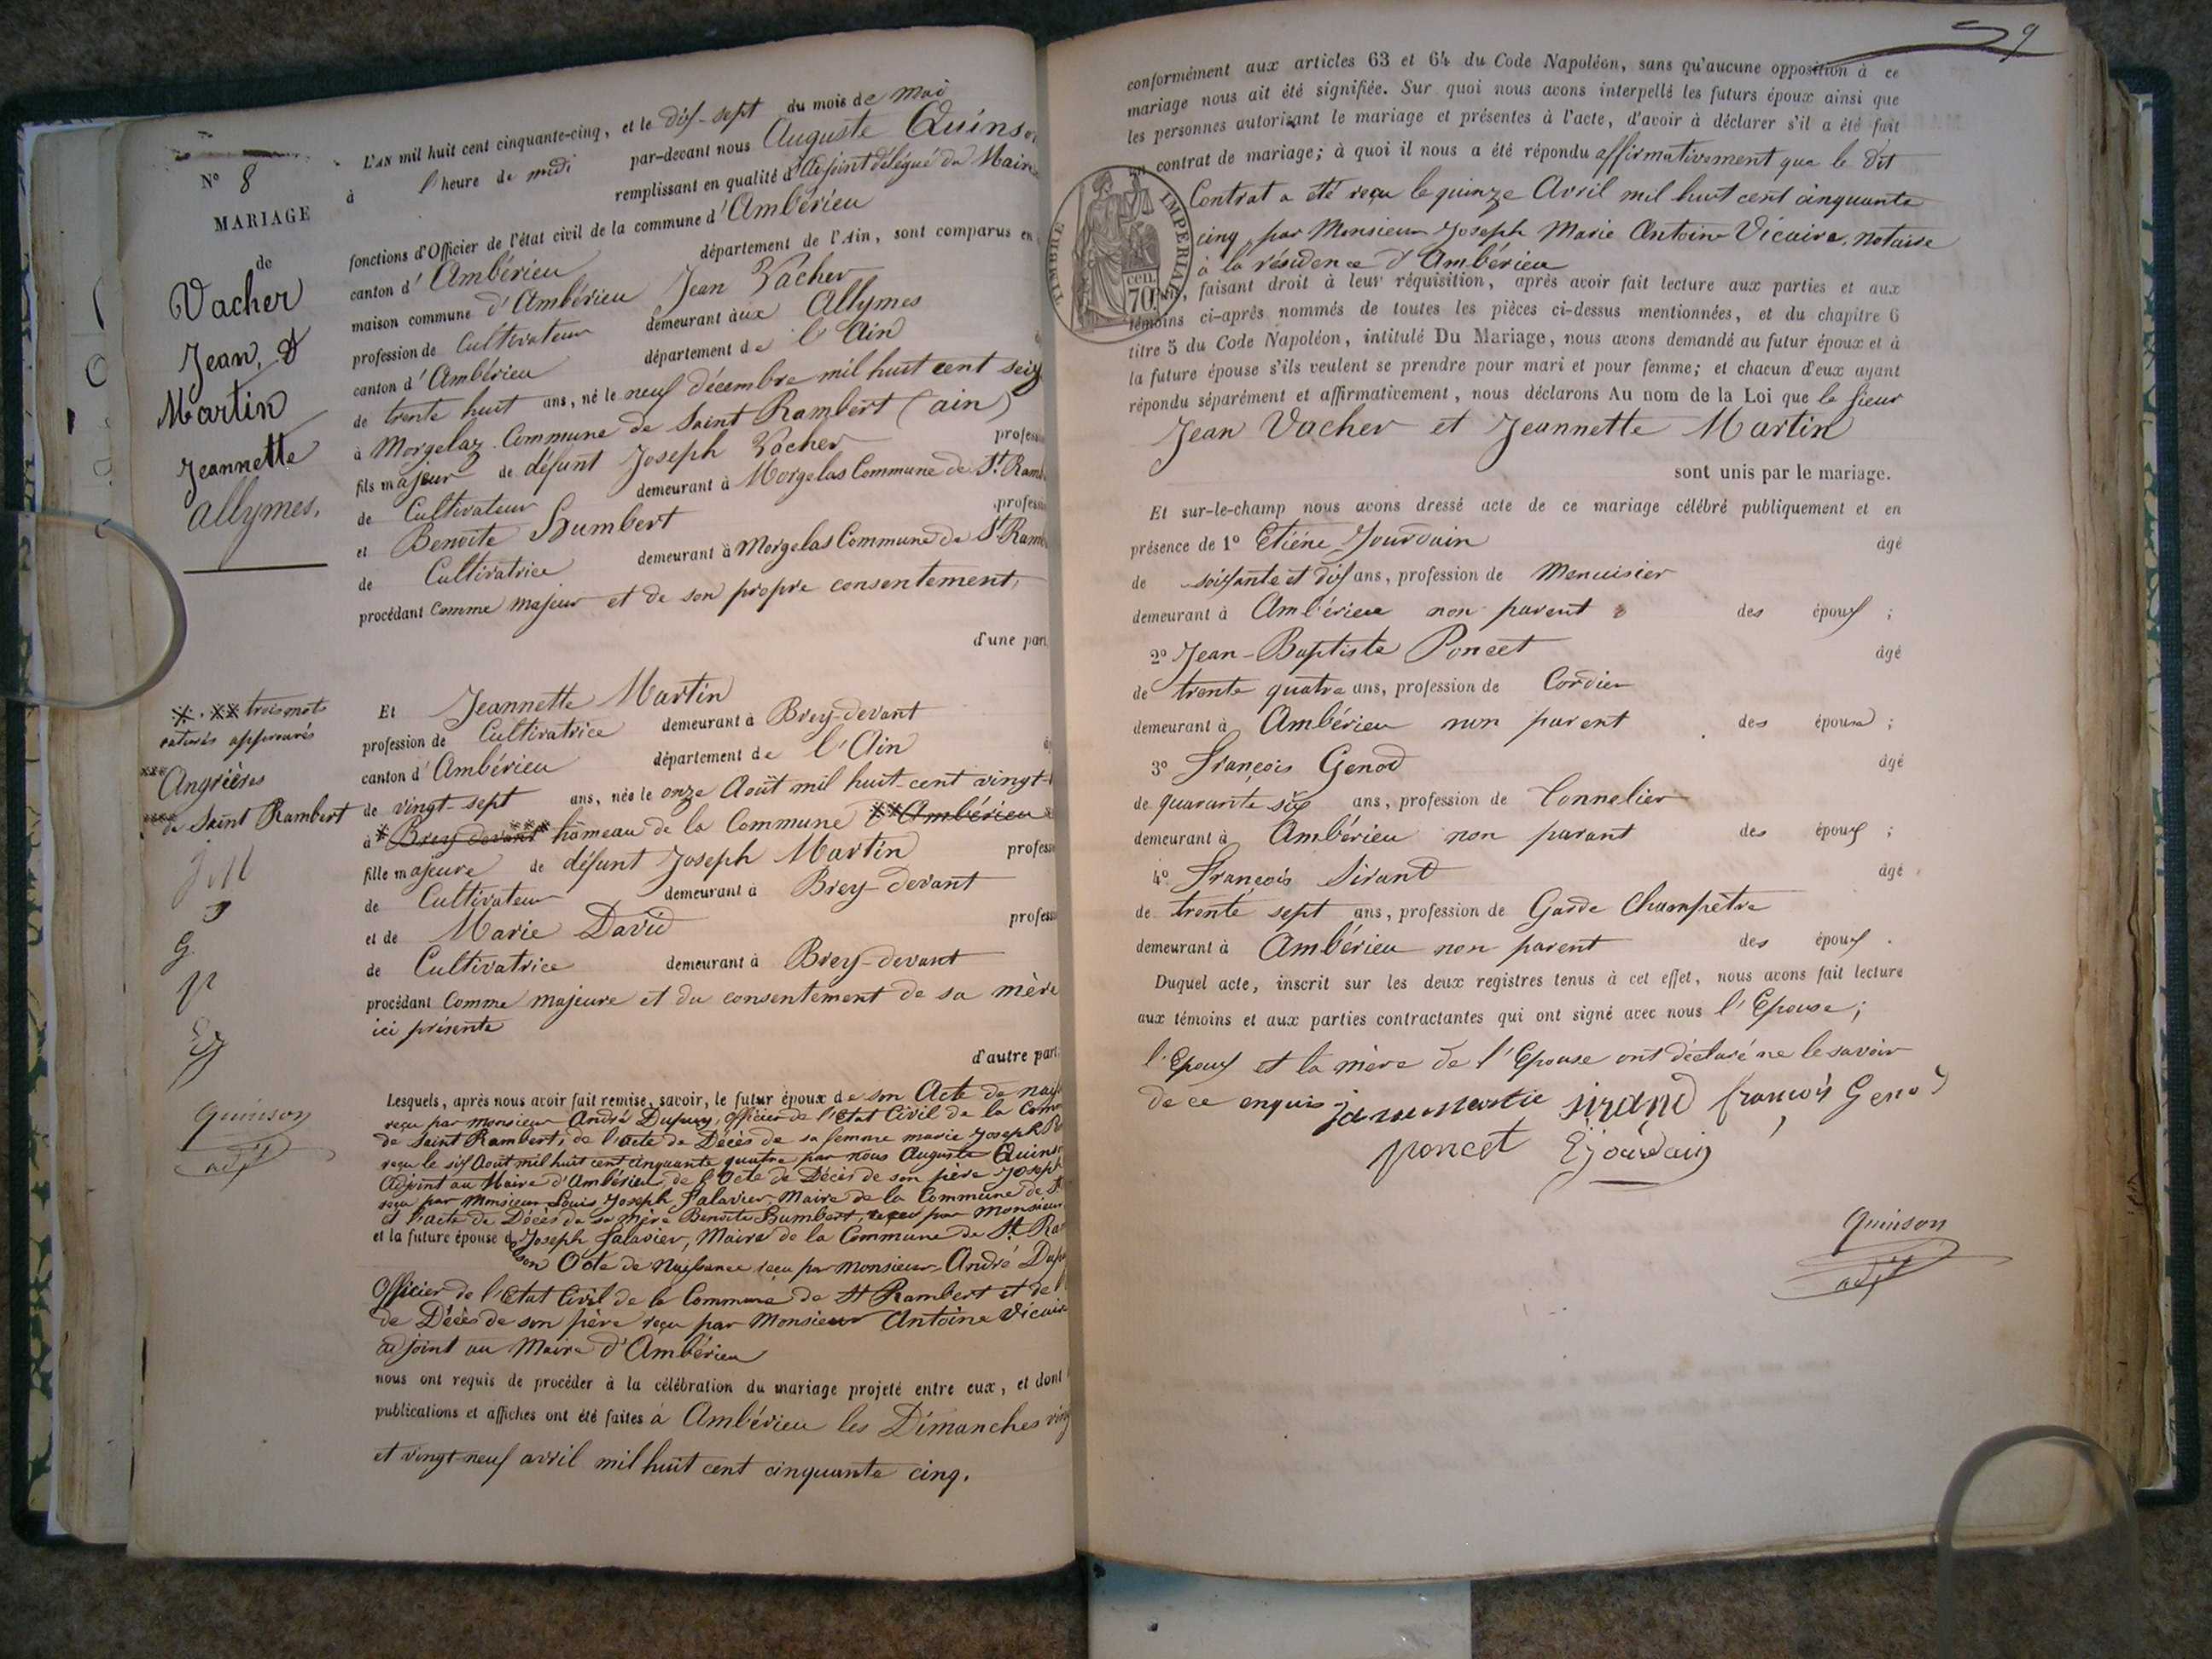 N° 8
MARIAGE
de
Vacher
Jean, &
Martin
Jeannette
Allymes.
trois mots
raturés approuvés
Angrières
de Saint Rambert
J M
G
P
EJ
Quinson
adjt
L'AN mil huit cent cinquante-cinq, et le dix-sept du mois de Mai
à l'heure de midi par-devant nous Auguste Quinson
remplissant en qualité d'Adjoint délégué du Maire
fonctions d'Officier de l'état civil de la commune d'Ambérieu
canton d'Ambérieu département de l'Ain, sont comparus en
maison commune d'Ambérieu Jean Vacher
profession de Cultivateur demeurant aux Allymes
canton d'Ambérieu département de l'Ain
de trente huit ans, né le neuf décembre mil huit cent seize
à Morgelaz Commune de Saint Rambert (ain)
fils majeur de défunt Joseph Vacher profess
de Cultivateur demeurant à Morgelas Commune de St. Ramb
et Benoite Humbert profess
de Cultivatrice demeurant à Morgelas Commune de St. Ramb
procédant Comme majeur et de son propre consentement,
d'une part
Et Jeannette Martin
profession de Cultivatrice demeurant à Brey-devant
canton d'Ambérieu département de l'Ain
de vingt-sept ans, née le onze Août mil huit-cent vingt-
à Brey-devant hameau de la Commune d'Ambérieu
fille majeure de défunt Joseph Martin profess
de Cultivateur demeurant à Brey-devant
et de Marie David profess
de Cultivatrice demeurant à Brey-devant
procédant Comme majeure et du consentement de sa mère
ici présente
d'autre part.
Lesquels, après nous avoir fait remise, savoir, le futur époux de son Acte de nais
reçu par monsieur André Dupuy, Officier de l'Etat Civil de la Com
de Saint Rambert, de l'acte de Décès de sa femme marie Joseph
reçu le six Août mil huit cent cinquante quatre par nous Auguste Quins
Adjoint au Maire d'Ambérieu, de l'Acte de Décès de son père Joseph
reçu par Monsieur Louis Joseph Salavier Maire de la Commune de St
et l'acte de Décès de sa mère Benoite Humbert, reçu par Monsieur
et la future épouse d Joseph Salavier, Maire de la Commune de St. Ra
son Acte de Naissance reçu par Monsieur André Dup
Officier de l'Etat Civil de la Commune de St Rambert et de l'
de Décès de son père reçu par Monsieur Antoine Vicaire
adjoint au Maire d'Ambérieu
nous ont requis de procéder à la célébration du mariage projeté entre eux, et dont
publications et affiches ont été faites à Ambérieu les Dimanches ving
et vingt-neuf avril mil huit cent cinquante cinq.
9
conformément aux articles 63 et 64 du Code Napoléon, sans qu'aucune opposition à ce
mariage nous ait été signifiée. Sur quoi nous avons interpellé les futurs époux ainsi que
les personnes autorisant le mariage et présentes à l'acte, d'avoir à déclarer s'il a été fait
un contrat de mariage; à quoi il nous a été répondu affirmativement que le dit
Contrat a été reçu le quinze Avril mil huit cent cinquante
cinq, par Monsieur Joseph Marie Antoine Vicaire, notaire
à la résidence d'Ambérieu
TIMBRE IMPERIAL
70 cen.
faisant droit à leur réquisition, après avoir fait lecture aux parties et aux
témoins ci-après nommés de toutes les pièces ci-dessus mentionnées, et du chapitre 6
titre 5 du Code Napoléon, intitulé Du Mariage, nous avons demandé au futur époux et à
la future épouse s'ils veulent se prendre pour mari et pour femme; et chacun d'eux ayant
répondu séparément et affirmativement, nous déclarons Au nom de la Loi que le Sieur
Jean Vacher et Jeannette Martin
sont unis par le mariage.
Et sur-le-champ nous avons dressé acte de ce mariage célébré publiquement et en
présence de 1° Etiéne Jourdain âgé
de soixante et dix ans, profession de Menuisier
demeurant à Ambérieu non parent des époux ;
2° Jean-Baptiste Poncet âgé
de trente quatre ans, profession de Cordier
demeurant à Ambérieu non parent des époux ;
3° François Genod âgé
de quarante six ans, profession de Tonnelier
demeurant à Ambérieu non parent des époux ;
4° François Sirand âgé
de trente sept ans, profession de Garde Champêtre
demeurant à Ambérieu non parent des époux .
Duquel acte, inscrit sur les deux registres tenus à cet effet, nous avons fait lecture
aux témoins et aux parties contractantes qui ont signé avec nous l'Epouse;
l'Epoux et la mère de l'Epouse ont déclaré ne le savoir
de ce enquis. Sirand françois Genod
poncet EJourdain
Quinson
adjt